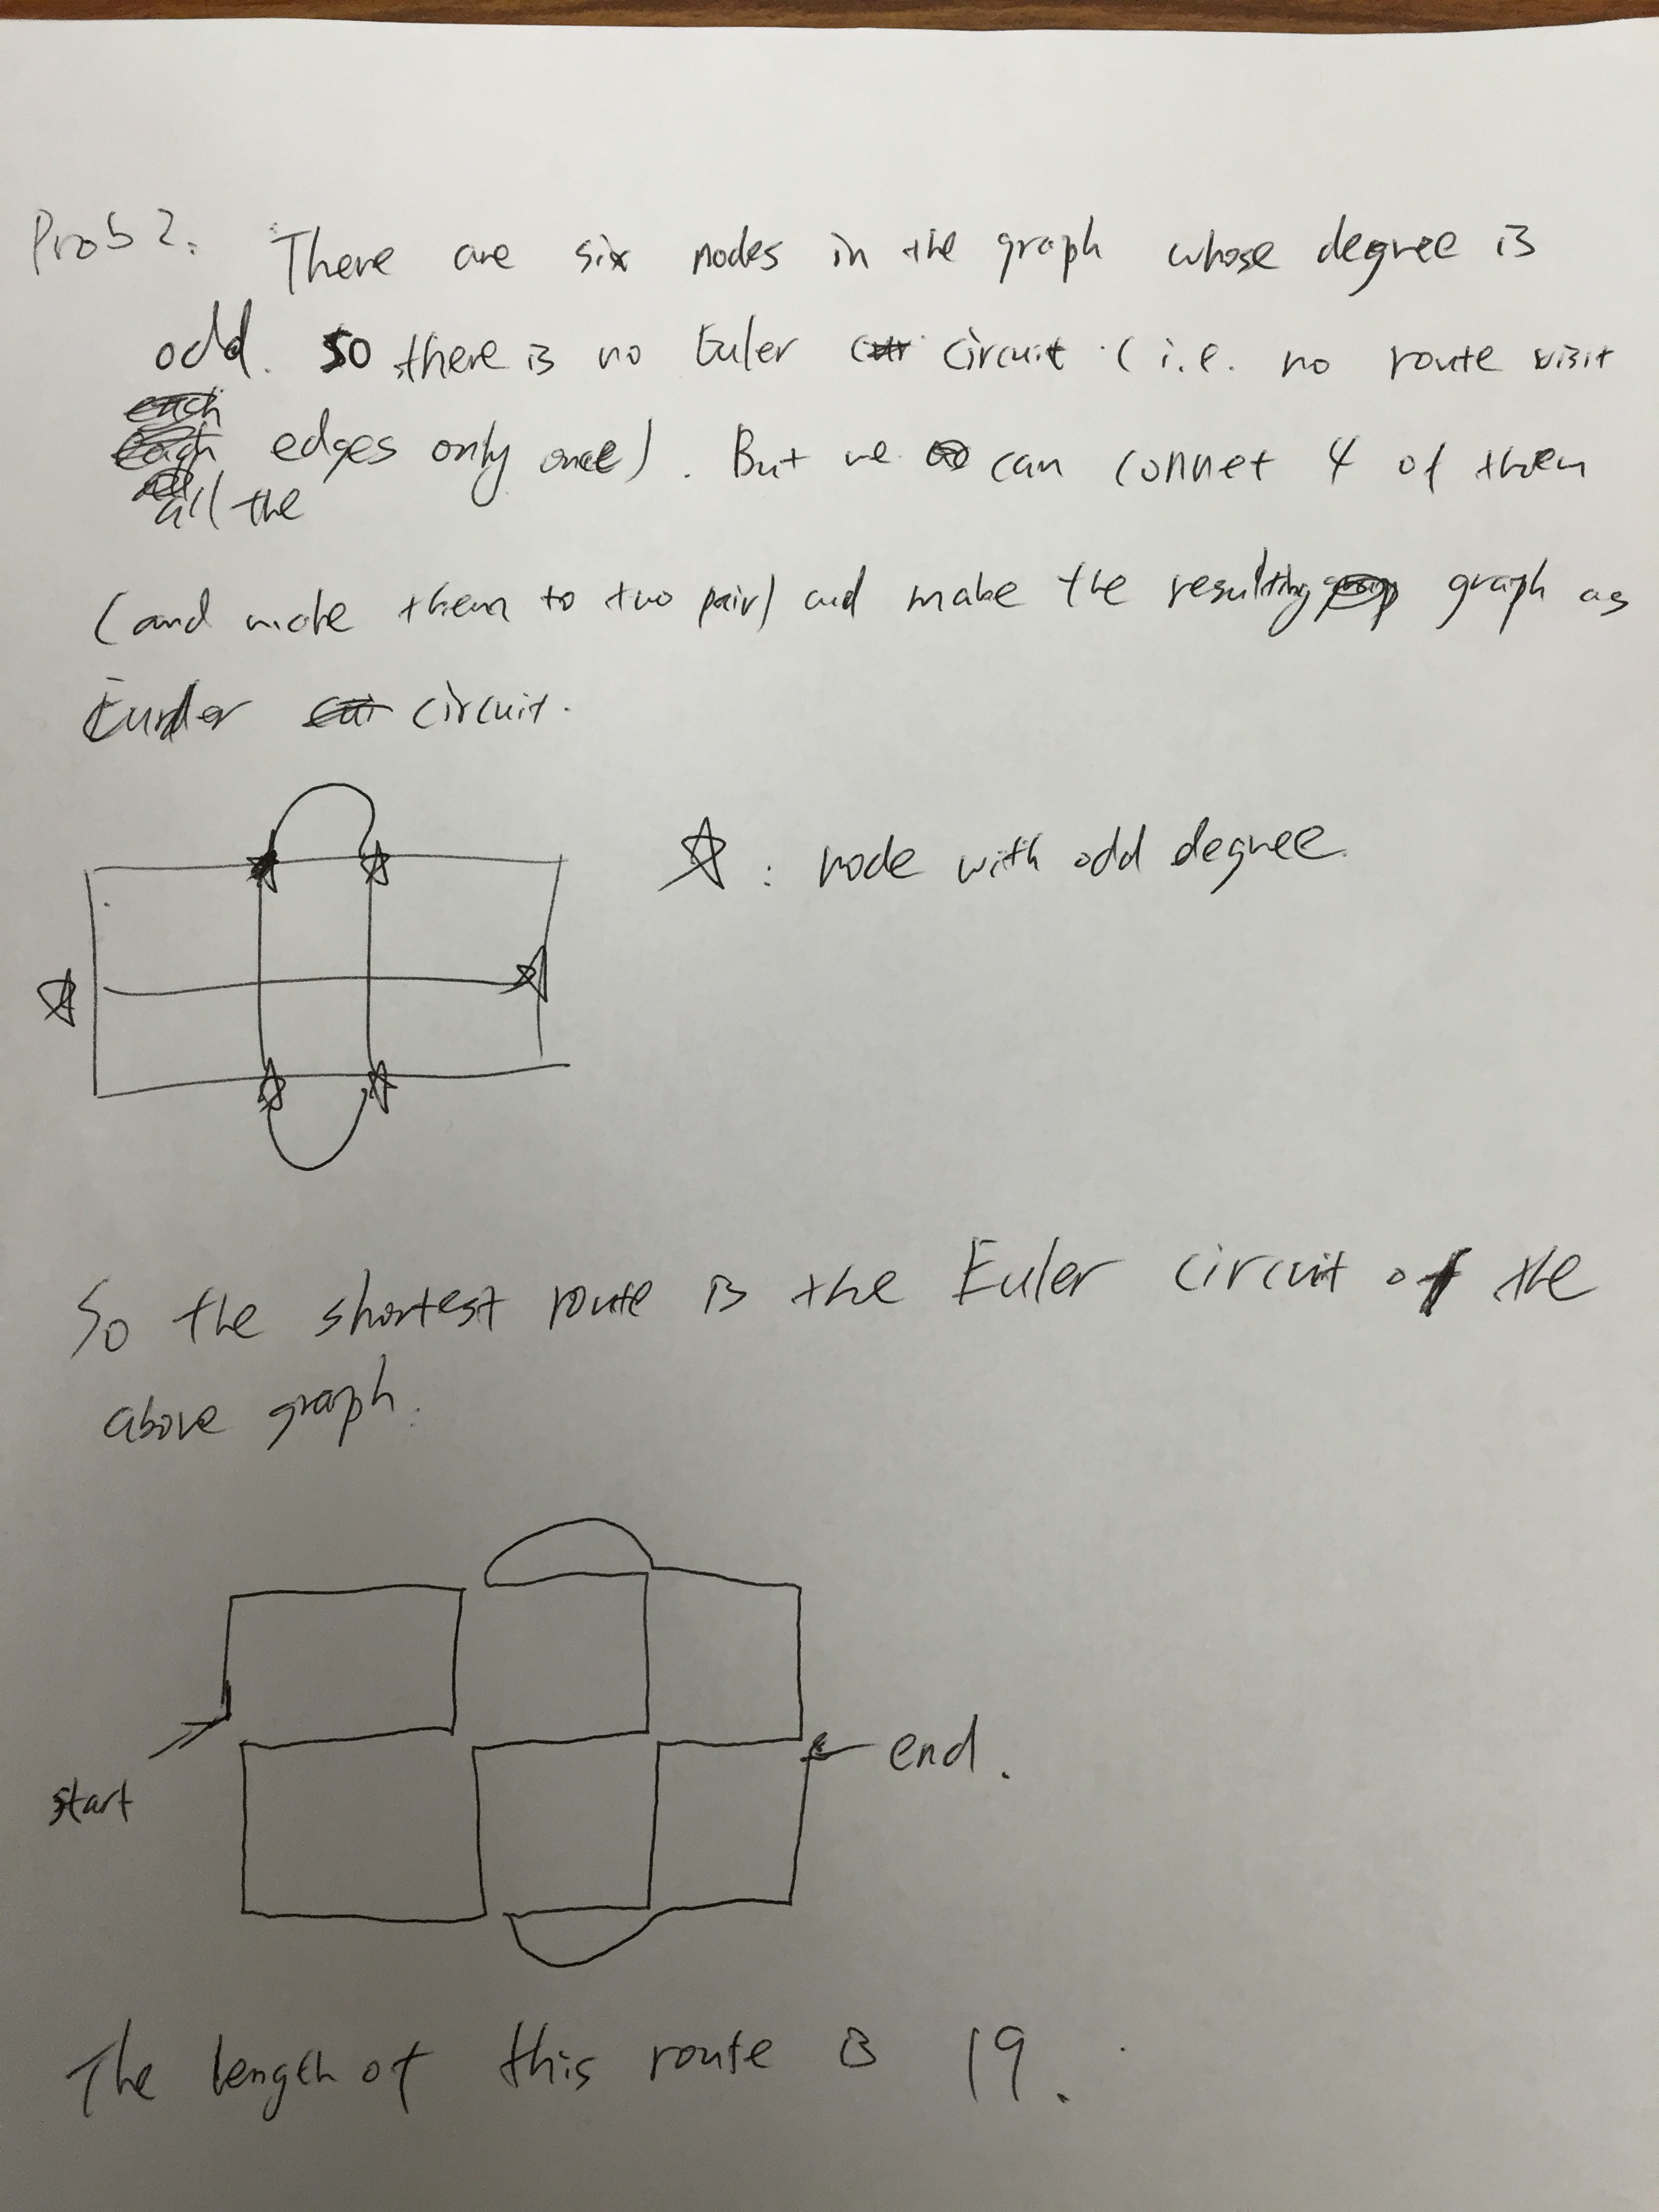 Prob 2. There are six nodes in the graph whose degree is
odd. So there is no Euler circuit (i.e. no route visit
all the edges only once). But we can connet 4 of them
(and make them to two pair) and make the resulting graph as
circuit.
☆ : node with odd degree.
So the shortest route is the Euler circuit of the
above graph.
start
end.
The length of this route is 19.